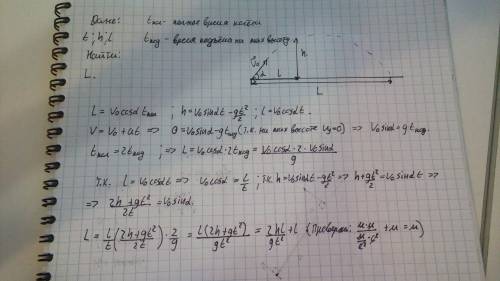 Дано: tпол - полное время полёта
t; h; l tпод - время подъёма на max высоту
Найти:
L.
v₀ α h l L
L = v₀cosα tпол ; h = v₀sinαt - gt²/2 ; l = v₀cosαt.
V = V₀ + at => 0 = v₀sinα - gtпод (т.к. на max высоте vy=0) => v₀sinα = gtпод.
tпол = 2tпод ; => L = v₀cosα · 2tпод = v₀cosα · 2 · v₀sinα / g
Т.к. l = v₀cosαt => v₀cosα = l/t ; т.к. h = v₀sinαt - gt²/2 => h + gt²/2 = v₀sinαt =>
=> 2h + gt² / 2t = v₀sinα.
L = l/t (2h + gt² / 2t) · 2/g = l(2h + gt²) / gt² = 2hl / gt² + l (Проверяем: м·м / м/с² · с² + м = м)